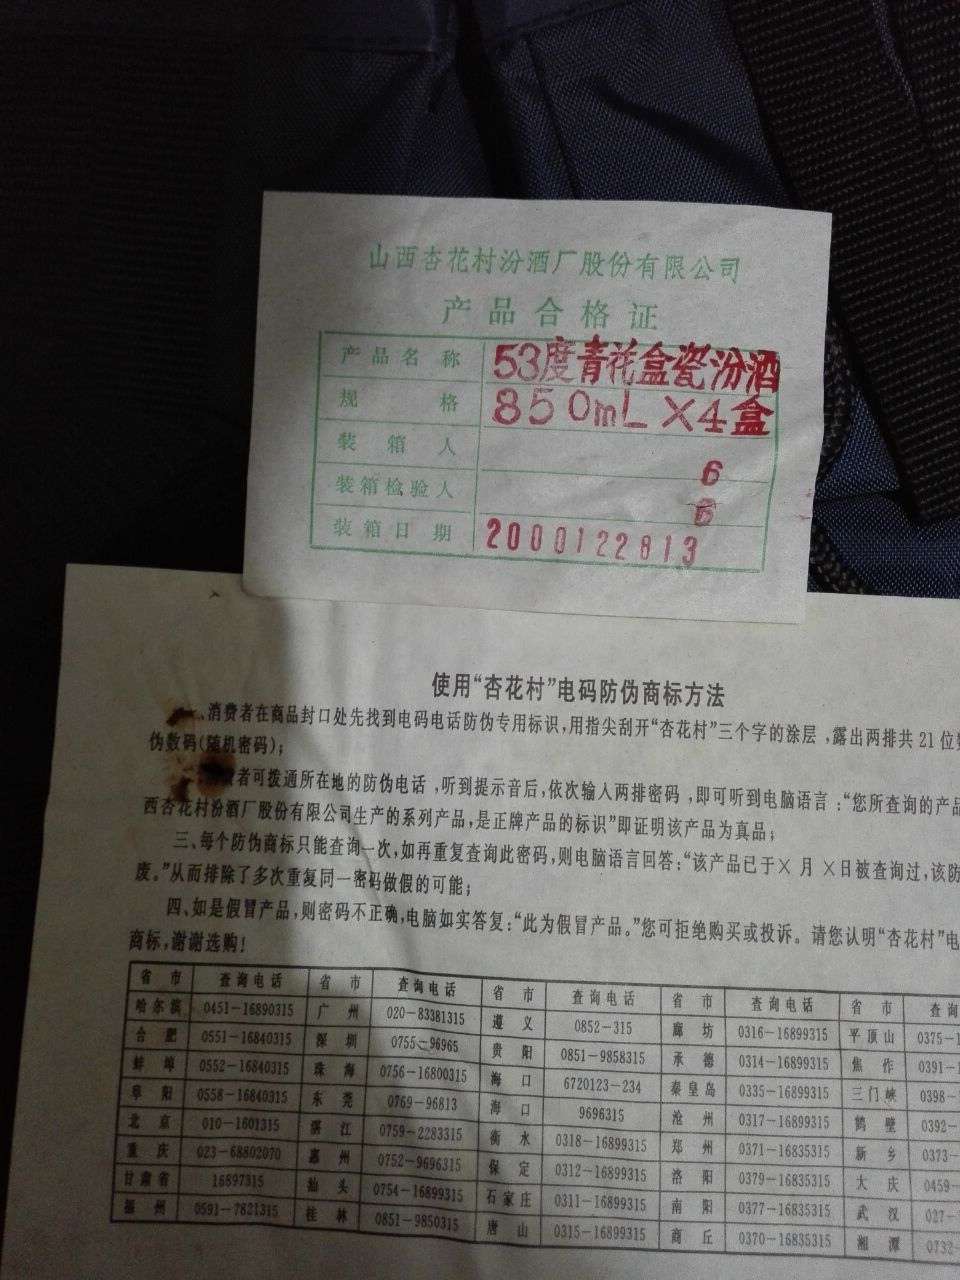 山西杏花村汾酒厂股份有限公司
产品合格证
产品名称 53度青花盒瓷汾酒
规格 850mL×4盒
装箱人 6
装箱检验人 6
装箱日期 2000122813
使用“杏花村”电码防伪商标方法
、消费者在商品封口处先找到电码电话防伪专用标识,用指尖刮开“杏花村”三个字的涂层,露出两排共21位
伪数码(随机密码);
者可拨通所在地的防伪电话,听到提示音后,依次输入两排密码,即可听到电脑语言:“您所查询的产品
西杏花村汾酒厂股份有限公司生产的系列产品,是正牌产品的标识”即证明该产品为真品;
三、每个防伪商标只能查询一次,如再重复查询此密码,则电脑语言回答:“该产品已于×月×日被查询过,该防
废。”从而排除了多次重复同一密码做假的可能;
四、如是假冒产品,则密码不正确,电脑如实答复:“此为假冒产品。”您可拒绝购买或投诉。请您认明“杏花村”电
商标,谢谢选购!
省市 查询电话 省市 查询电话 省市 查询电话 省市 查询电话 省市 查询
哈尔滨 0451-16890315 广州 020-83381315 遵义 0852-315 廊坊 0316-16899315 平顶山 0375-1
合肥 0551-16840315 深圳 0755-96965 贵阳 0851-9858315 承德 0314-16899315 焦作 0391-1
蚌埠 0552-16840315 珠海 0756-16800315 海口 6720123-234 秦皇岛 0335-16899315 三门峡 0398-
阜阳 0558-16840315 东莞 0769-96813 海口 9696315 沧州 0317-16899315 鹤壁 0392-
北京 010-1601315 湛江 0759-2283315 衡水 0318-16899315 郑州 0371-16835315 新乡 0373-
重庆 023-68802070 惠州 0752-9696315 保定 0312-16899315 洛阳 0379-16835315 大庆 0459-
甘肃省 16897315 汕头 0754-16899315 石家庄 0311-16899315 南阳 0377-16835315 武汉 027-
福州 0591-7821315 桂林 0851-9850315 唐山 0315-16899315 商丘 0370-16835315 湘潭 0732-